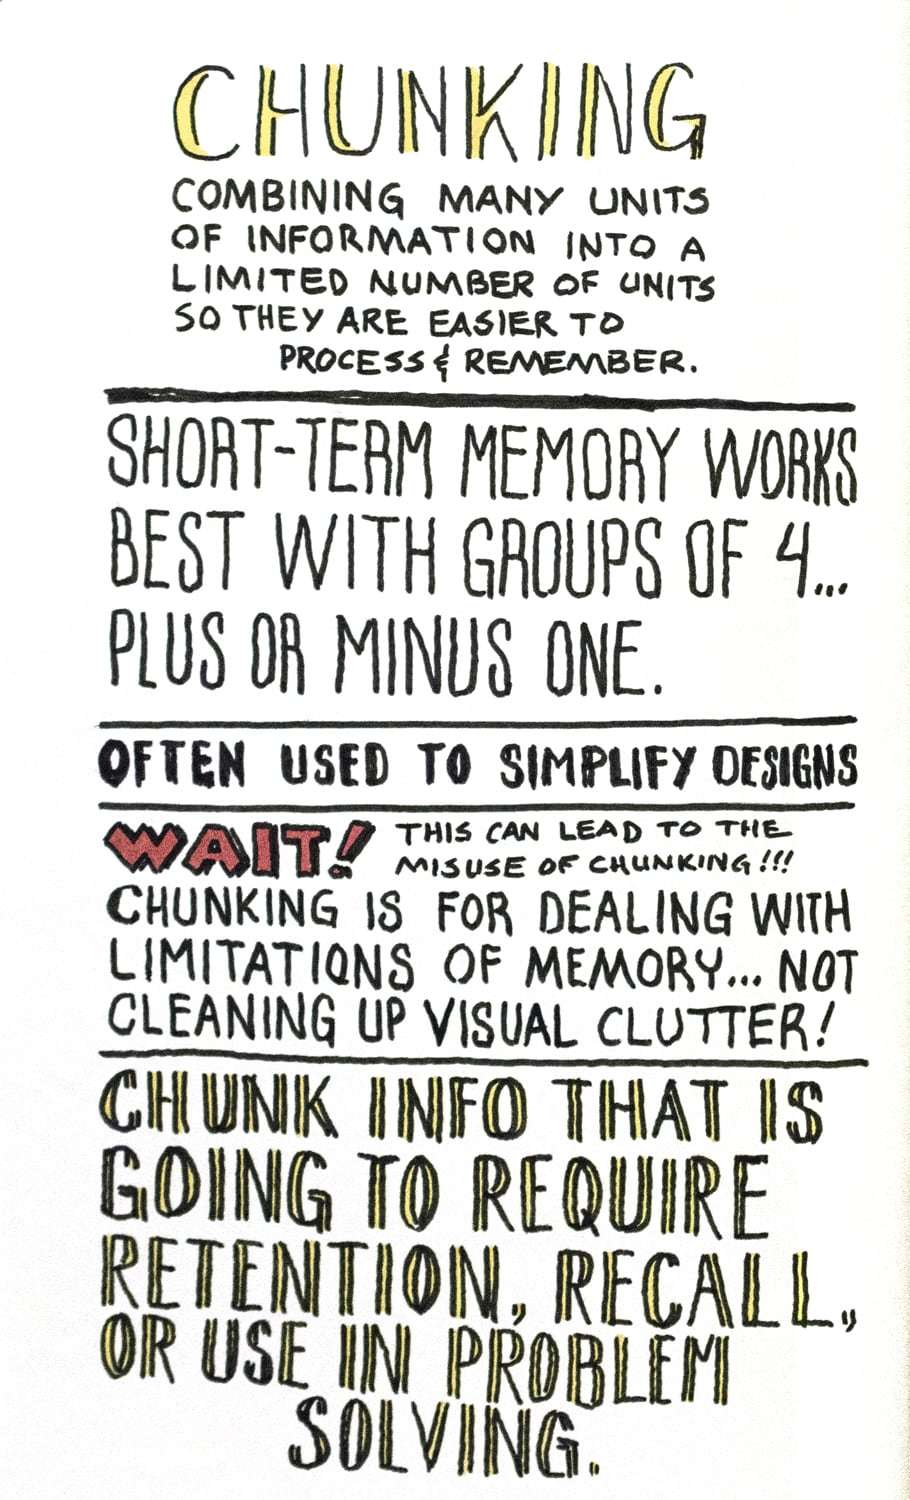 CHUNKING
COMBINING MANY UNITS
OF INFORMATION INTO A
LIMITED NUMBER OF UNITS
SO THEY ARE EASIER TO
PROCESS & REMEMBER.
SHORT-TERM MEMORY WORKS
BEST WITH GROUPS OF 4...
PLUS OR MINUS ONE.
OFTEN USED TO SIMPLIFY DESIGNS
WAIT! THIS CAN LEAD TO THE
MISUSE OF CHUNKING!!!
CHUNKING IS FOR DEALING WITH
LIMITATIONS OF MEMORY... NOT
CLEANING UP VISUAL CLUTTER!
CHUNK INFO THAT IS
GOING TO REQUIRE
RETENTION, RECALL,
OR USE IN PROBLEM
SOLVING.